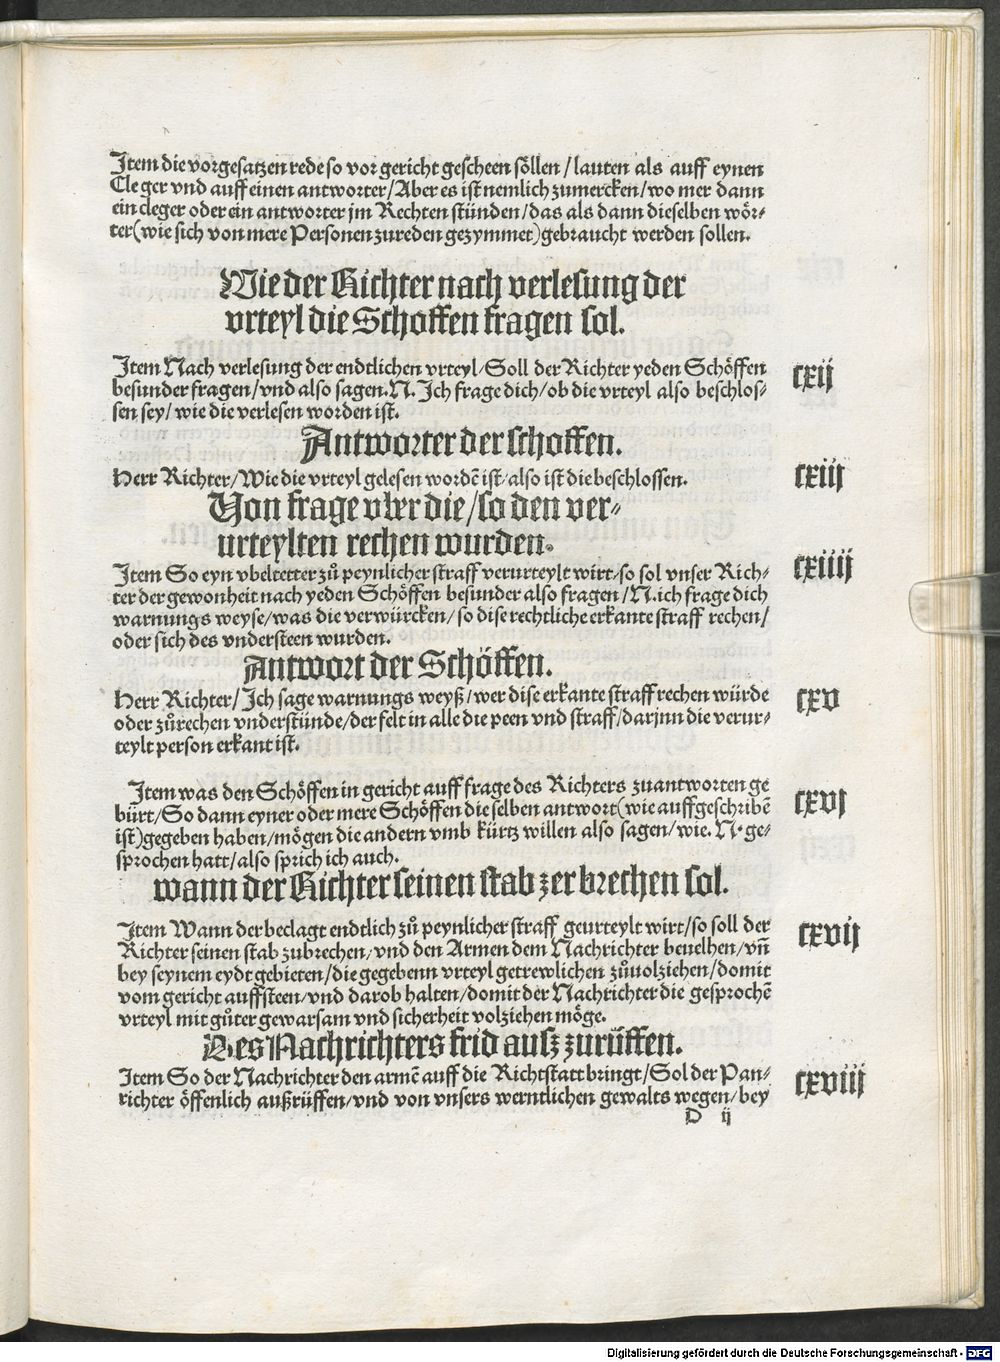 Item die vorgesatzen rede so vor gericht gescheen söllen / lauten als auff eynen
Cleger vnd auff einen antworter / Aber es ist nemlich zumercken / wo mer dann
ein cleger oder ein antworter jm Rechten stünden / das als dann dieselben wör⸗
ter (wie sich von mere Personen zureden gezymmet) gebraucht werden sollen.
Wie der Richter nach verlesung der
vrteyl die Schoffen fragen sol.
Item Nach verlesung der endtlichen vrteyl / Soll der Richter yeden Schöffen
cxij
besunder fragen / vnd also sagen. N. Ich frage dich / ob die vrteyl also beschlos⸗
sen sey / wie die verlesen worden ist.
Antworter der schoffen.
Herr Richter / Wie die vrteyl gelesen wordē ist / also ist die beschlossen.
cxiij
Von frage vber die / so den ver⸗
urteylten rechen wurden.
cxiiij
Item So eyn vbeltetter zů peynlicher straff verurteylt wirt / so sol vnser Rich⸗
ter der gewonheit nach yeden Schöffen besunder also fragen / N. ich frage dich
warnungs weyse / was die verwürcken / so dise rechtliche erkante straff rechen /
oder sich des vndersteen wurden.
Antwort der Schöffen.
Herr Richter / Ich sage warnungs weyß / wer dise erkante straff rechen würde
cxv
oder zůrechen vnderstünde / der felt in alle die peen vnd straff / darjnn die verur⸗
teylt person erkant ist.
Item was den Schöffen in gericht auff frage des Richters zuantworten ge
cxvj
bürt / So dann eyner oder mere Schöffen die selben antwort (wie auffgeschribē
ist) gegeben haben / mögen die andern vmb kürtz willen also sagen / wie. N. ge⸗
sprochen hatt / also sprich ich auch.
wann der Richter seinen stab zerbrechen sol.
Item Wann der beclagt endtlich zů peynlicher straff geurteylt wirt / so soll der
cxvij
Richter seinen stab zubrechen / vnd den Armen dem Nachrichter beuelhen / vn̄
bey seynem eydt gebieten / die gegebenn vrteyl getrewlichen zůuolziehen / domit
vom gericht auffsteen / vnd darob halten / domit der Nachrichter die gesprochē
vrteyl mit gůter gewarsam vnd sicherheit volziehen möge.
Des Nachrichters frid ausz zurüffen.
Item So der Nachrichter den armē auff die Richtstatt bringt / Sol der Pan⸗
cxviij
richter öffenlich außrüffen / vnd von vnsers werntlichen gewalts wegen / bey
D ij
Digitalisierung gefördert durch die Deutsche Forschungsgemeinschaft - DFG